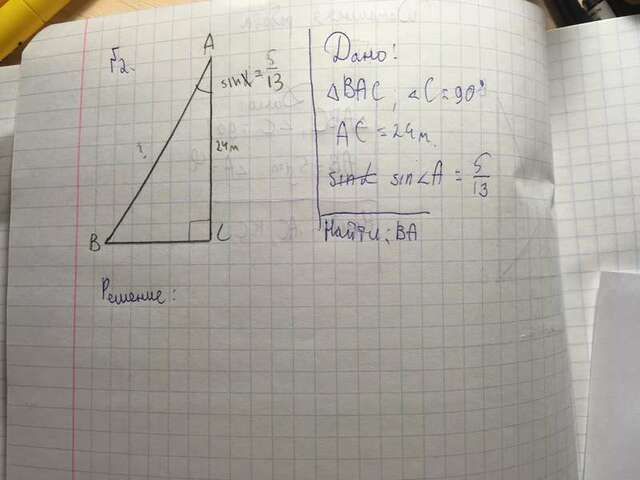 №2.
A
sin α = 5/13
?
24м
B
C
Дано:
△BAC, ∠C = 90°
AC = 24м.
sin α sin∠A = 5/13
Найти: BA
Решение: